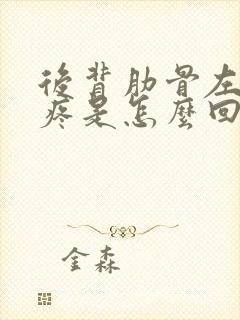 後背肋骨左
疼是怎麼回
金森